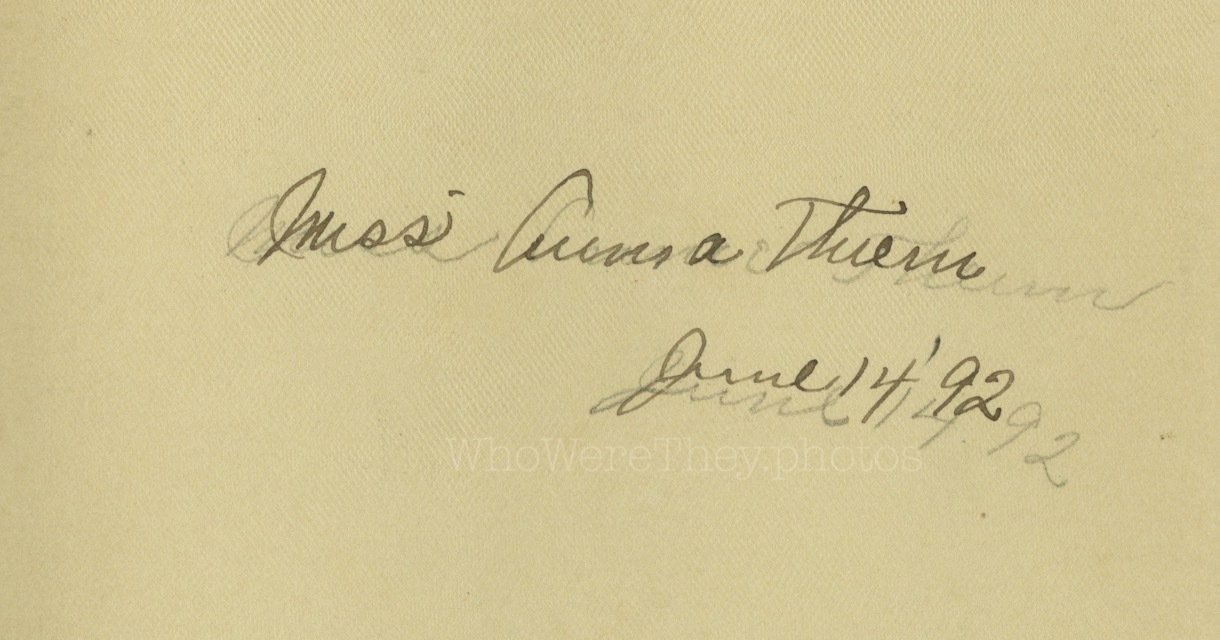 Miss Anna Thiem
June 14 '92
WhoWereThey.photos